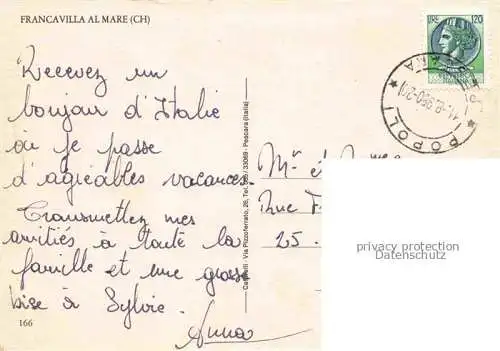 FRANCAVILLA AL MARE (CH)
LIRE 120
POPOLI
Recevez un
bonjour d'Italie
où je passe
d'agréables vacances.
Transmettez mes
amitiés à toute la
famille et une grosse
bise à Sylvie.
Anna
166
Via Pizzoferrato, 26, Tel. 33069 - Pescara (Italia)
Mr et
Rue
25.
privacy protection
Datenschutz